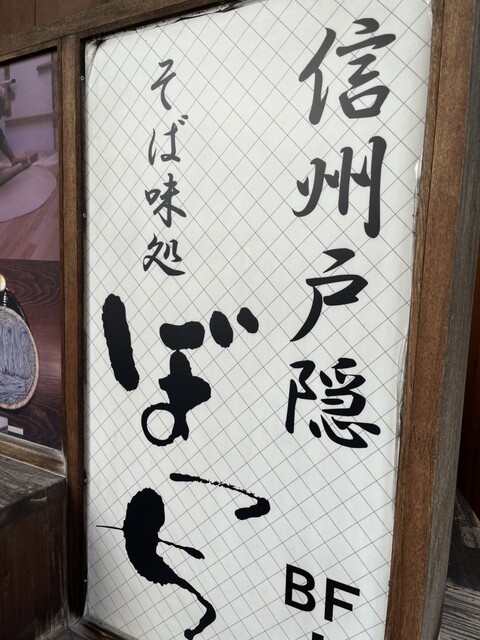 信州戸隠
そば味処
ぼっち
BF